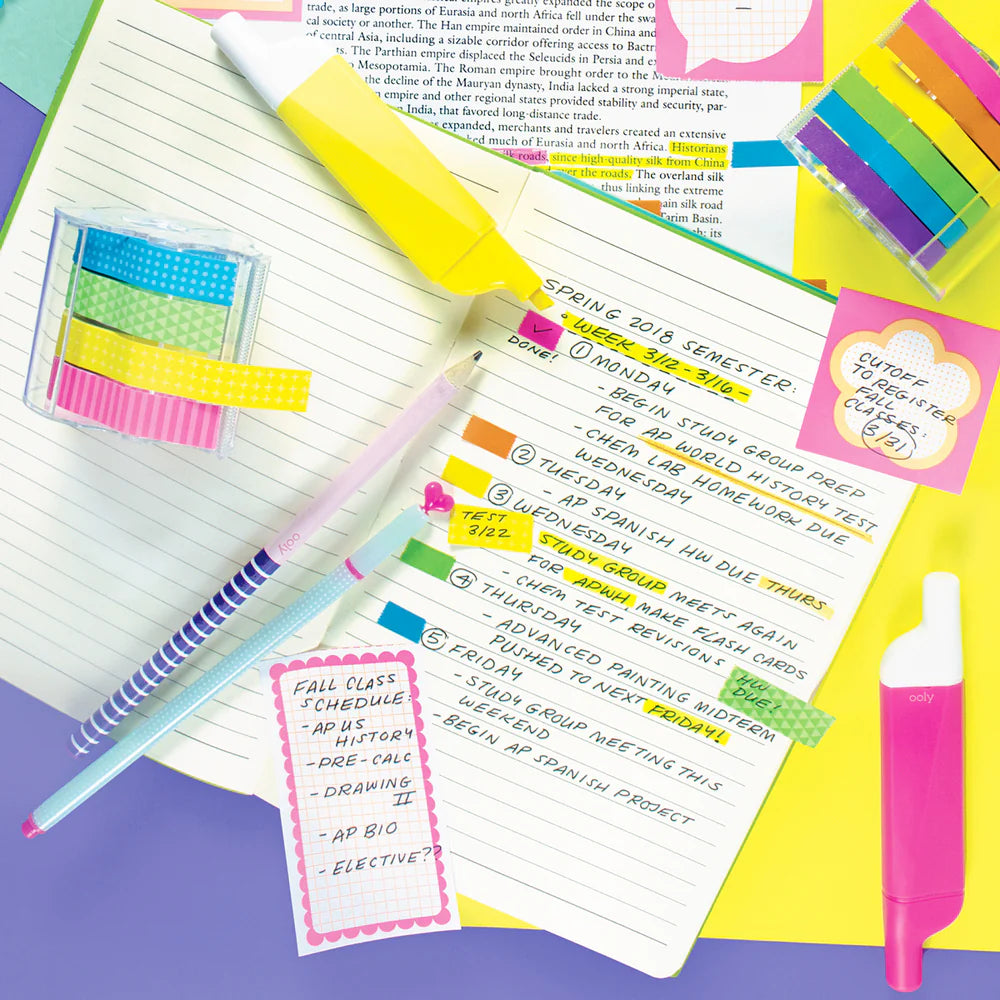 trade, as large portions of Eurasia and north Africa fell under the
cal society or another. The Han empire maintained order in China and
of central Asia, including a sizable corridor offering access to
The Parthian empire displaced the Seleucids in Persia and
Mesopotamia. The Roman empire brought order to the
the decline of the Mauryan dynasty, India lacked a strong imperial state,
empire and other regional states provided stability and security, par-
India, that favored long-distance trade.
expanded, merchants and travelers created an extensive
much of Eurasia and north Africa. Historians
roads, since high-quality silk from China
over the roads. The overland silk
thus linking the extreme
main silk road
Tarim Basin.
its
SPRING 2018 SEMESTER:
• WEEK 3/12 - 3/16 -
✓
DONE!
① MONDAY
- BEGIN STUDY GROUP PREP
FOR AP WORLD HISTORY TEST
- CHEM LAB HOMEWORK DUE
WEDNESDAY
② TUESDAY
- AP SPANISH HW DUE THURS
③ WEDNESDAY
TEST
3/22
STUDY GROUP MEETS AGAIN
FOR APWH MAKE FLASH CARDS
- CHEM TEST REVISIONS
④ THURSDAY
- ADVANCED PAINTING MIDTERM
PUSHED TO NEXT FRIDAY!
HW
DUE!
⑤ FRIDAY
- STUDY GROUP MEETING THIS
WEEKEND
- BEGIN AP SPANISH PROJECT
CUTOFF
TO REGISTER
FALL
CLASSES:
3/31
FALL CLASS
SCHEDULE:
- AP US
HISTORY
- PRE-CALC
- DRAWING
II
- AP BIO
- ELECTIVE??
ooly
ooly